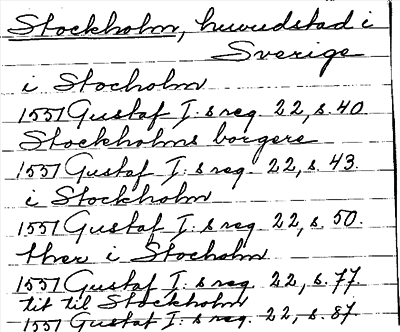 Stockholm, huvudstad i
Sverige
i Stocholm
1551 Gustaf I: s reg. 22, s. 40.
Stockholms borgere
1551 Gustaf I: s reg. 22, s. 43.
i Stockholm
1551 Gustaf I: s reg. 22, s. 50.
ther i Stocholm
1551 Gustaf I: s reg. 22, s. 77.
tit til Stockholm
1551 Gustaf I: s reg. 22, s. 87.